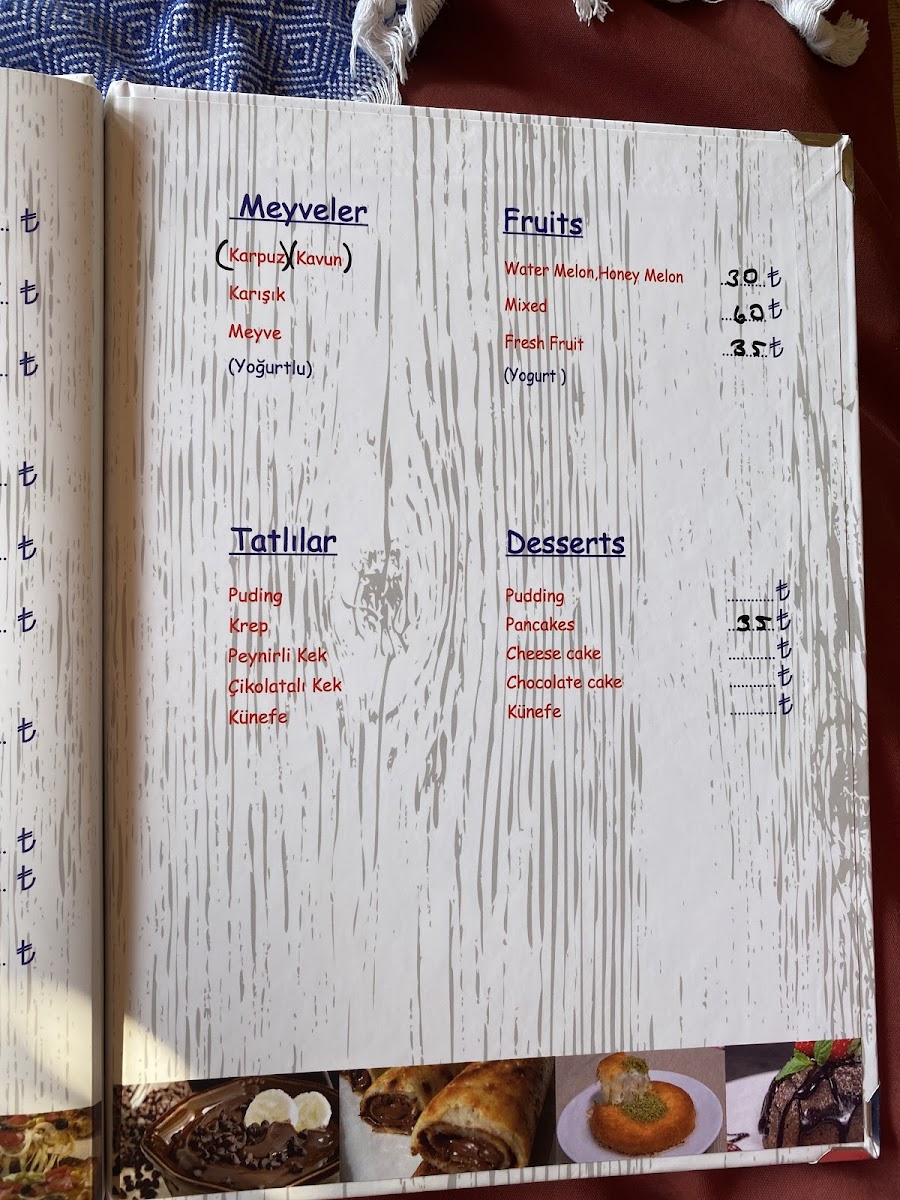 Meyveler
(Karpuz)(Kavun)
Karışık
Meyve
(Yoğurtlu)
Fruits
Water Melon,Honey Melon ........30₺
Mixed ........60₺
Fresh Fruit ........35₺
(Yogurt )
Tatlılar
Puding
Krep
Peynirli Kek
Çikolatalı Kek
Künefe
Desserts
Pudding ............₺
Pancakes ........35₺
Cheese cake ............₺
Chocolate cake ............₺
Künefe ............₺
.. ₺
.. ₺
.. ₺
.. ₺
.. ₺
.. ₺
.. ₺
.. ₺
.. ₺
.. ₺